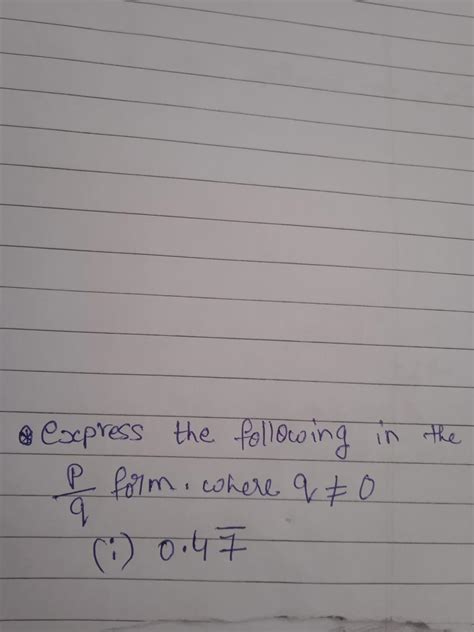 * Express the following in the
p/q form. where q ≠ 0
(i) 0.47̅